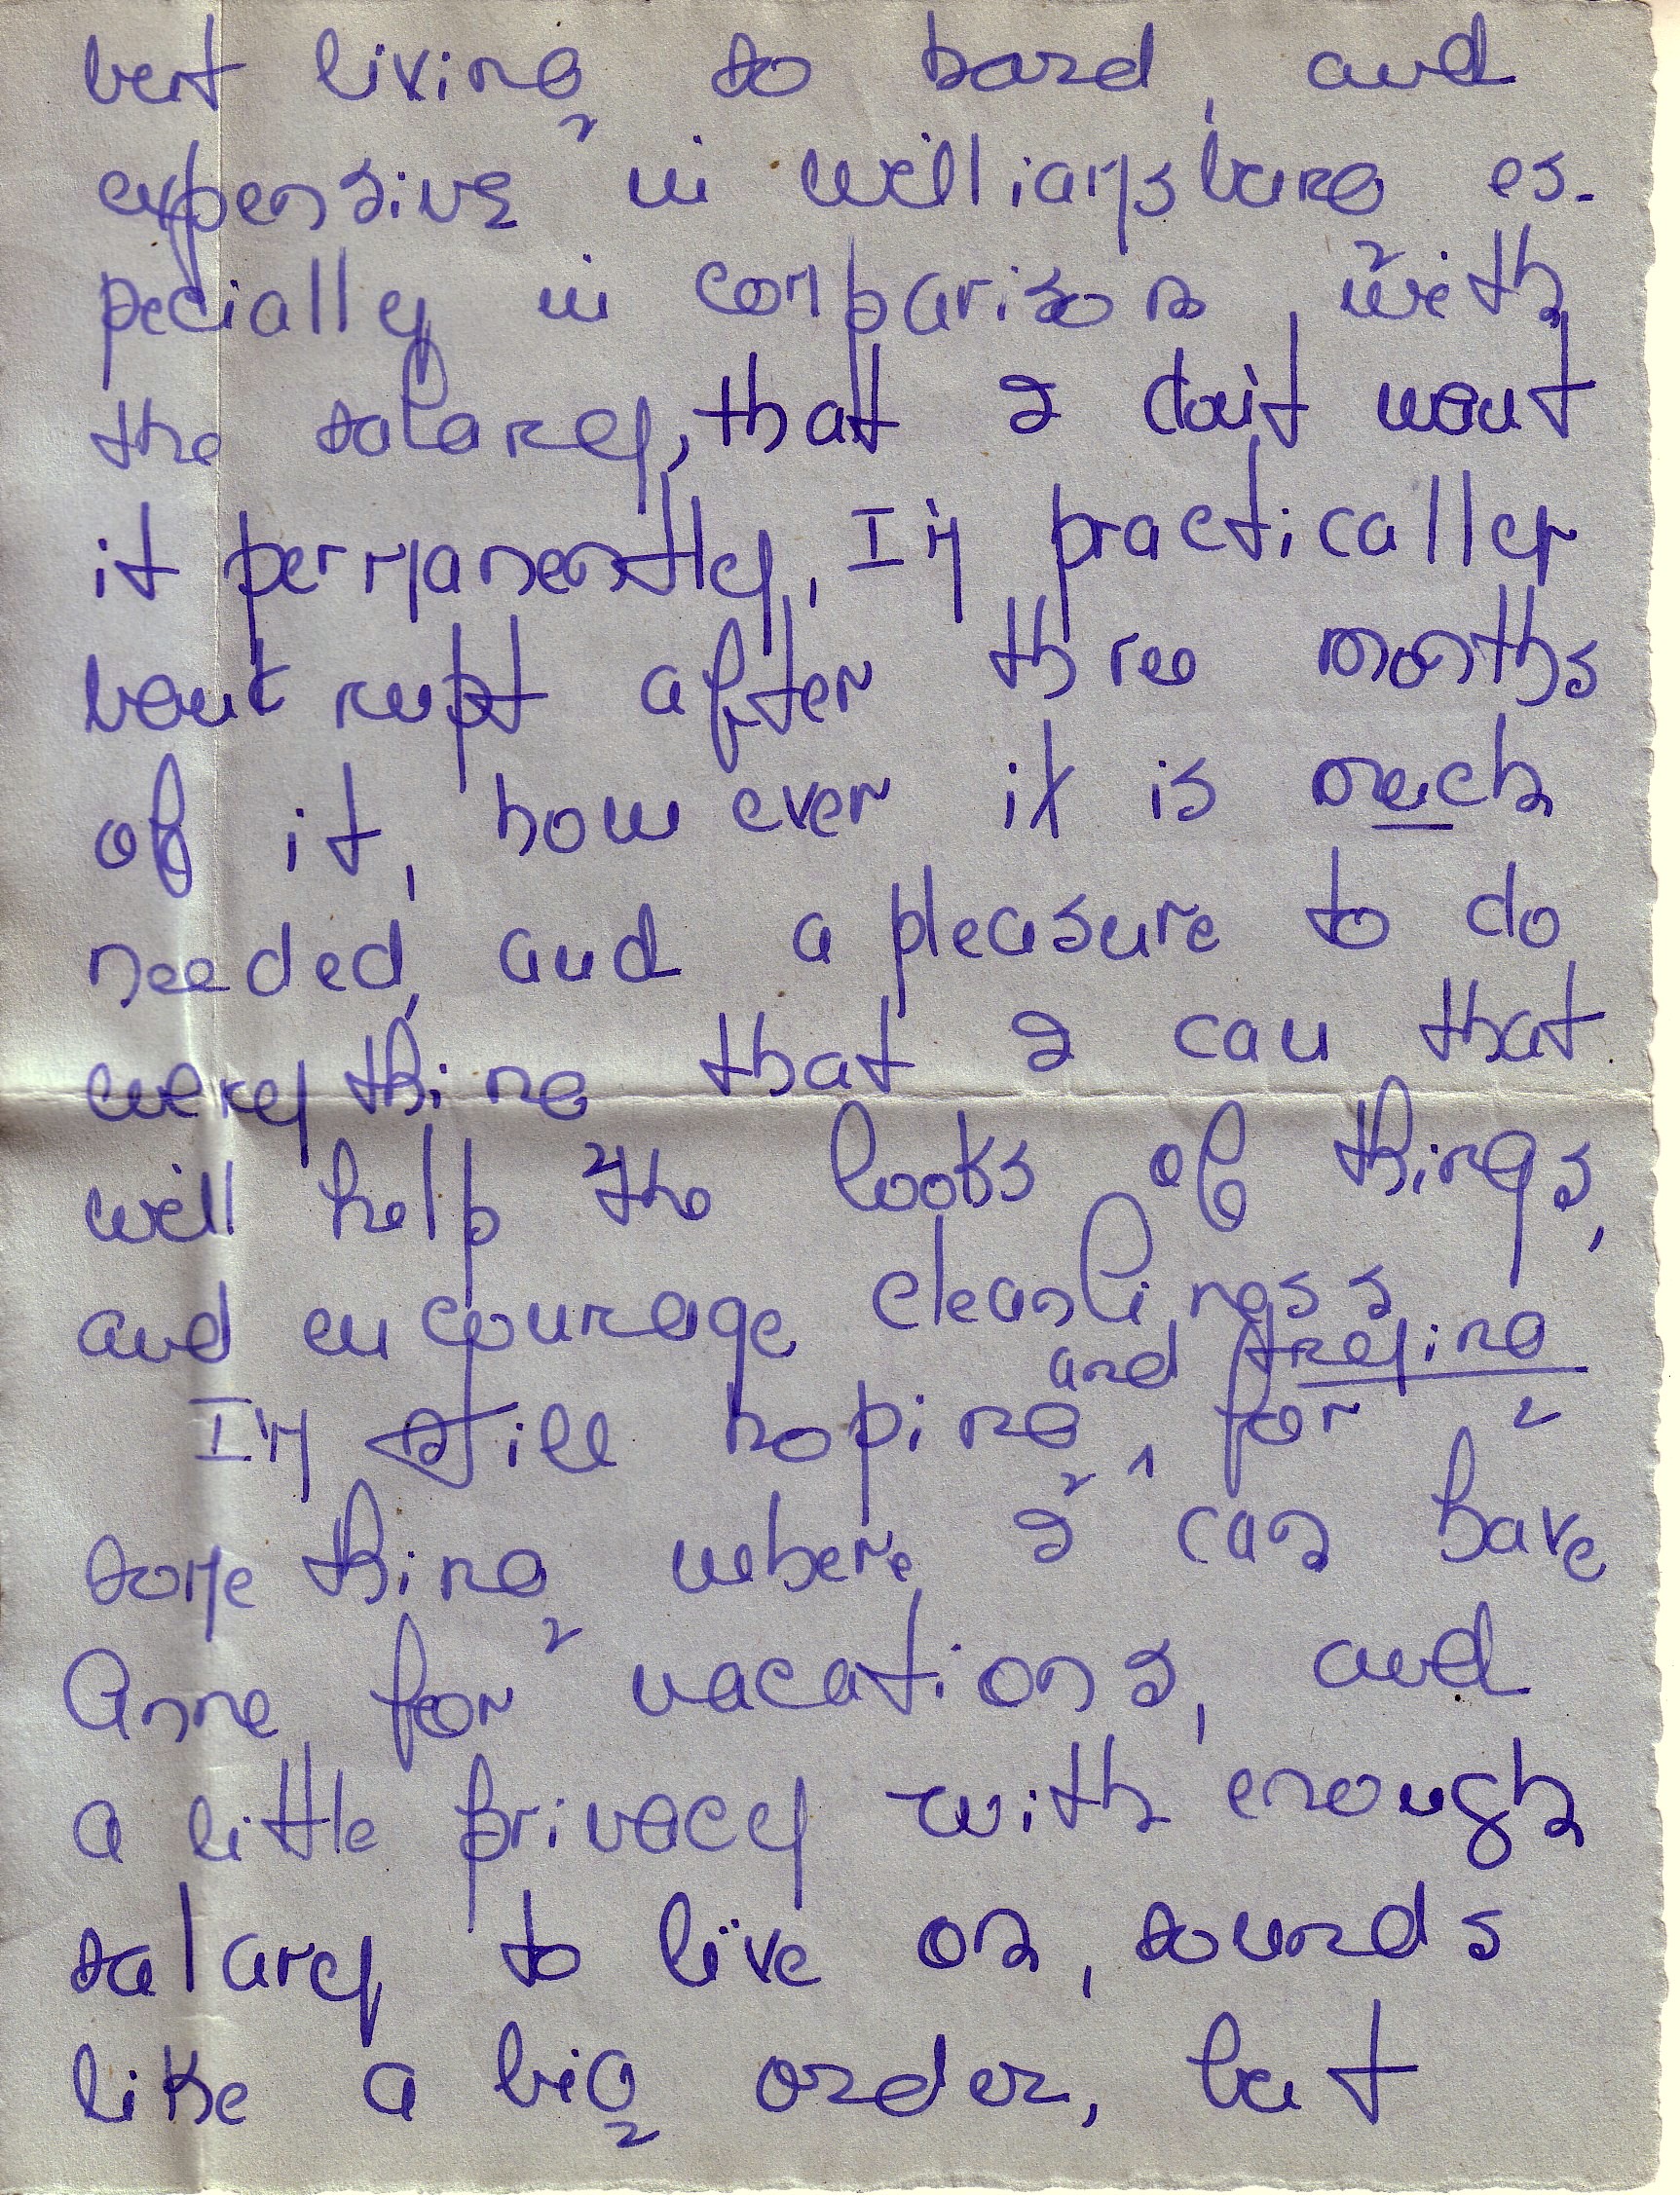 but living so hard, and
expensive in Williamsburg es-
pecially in comparison with
the salary, that I don't want
it permanently, I'm practically
bankrupt after three months
of it, however it is much
needed, and a pleasure to do
everything that I can that
will help the looks of things,
and encourage cleanliness
I'm still hoping, and trying for
something where I can have
Anne for vacations, and
a little privacy with enough
salary to live on, sounds
like a big order, but